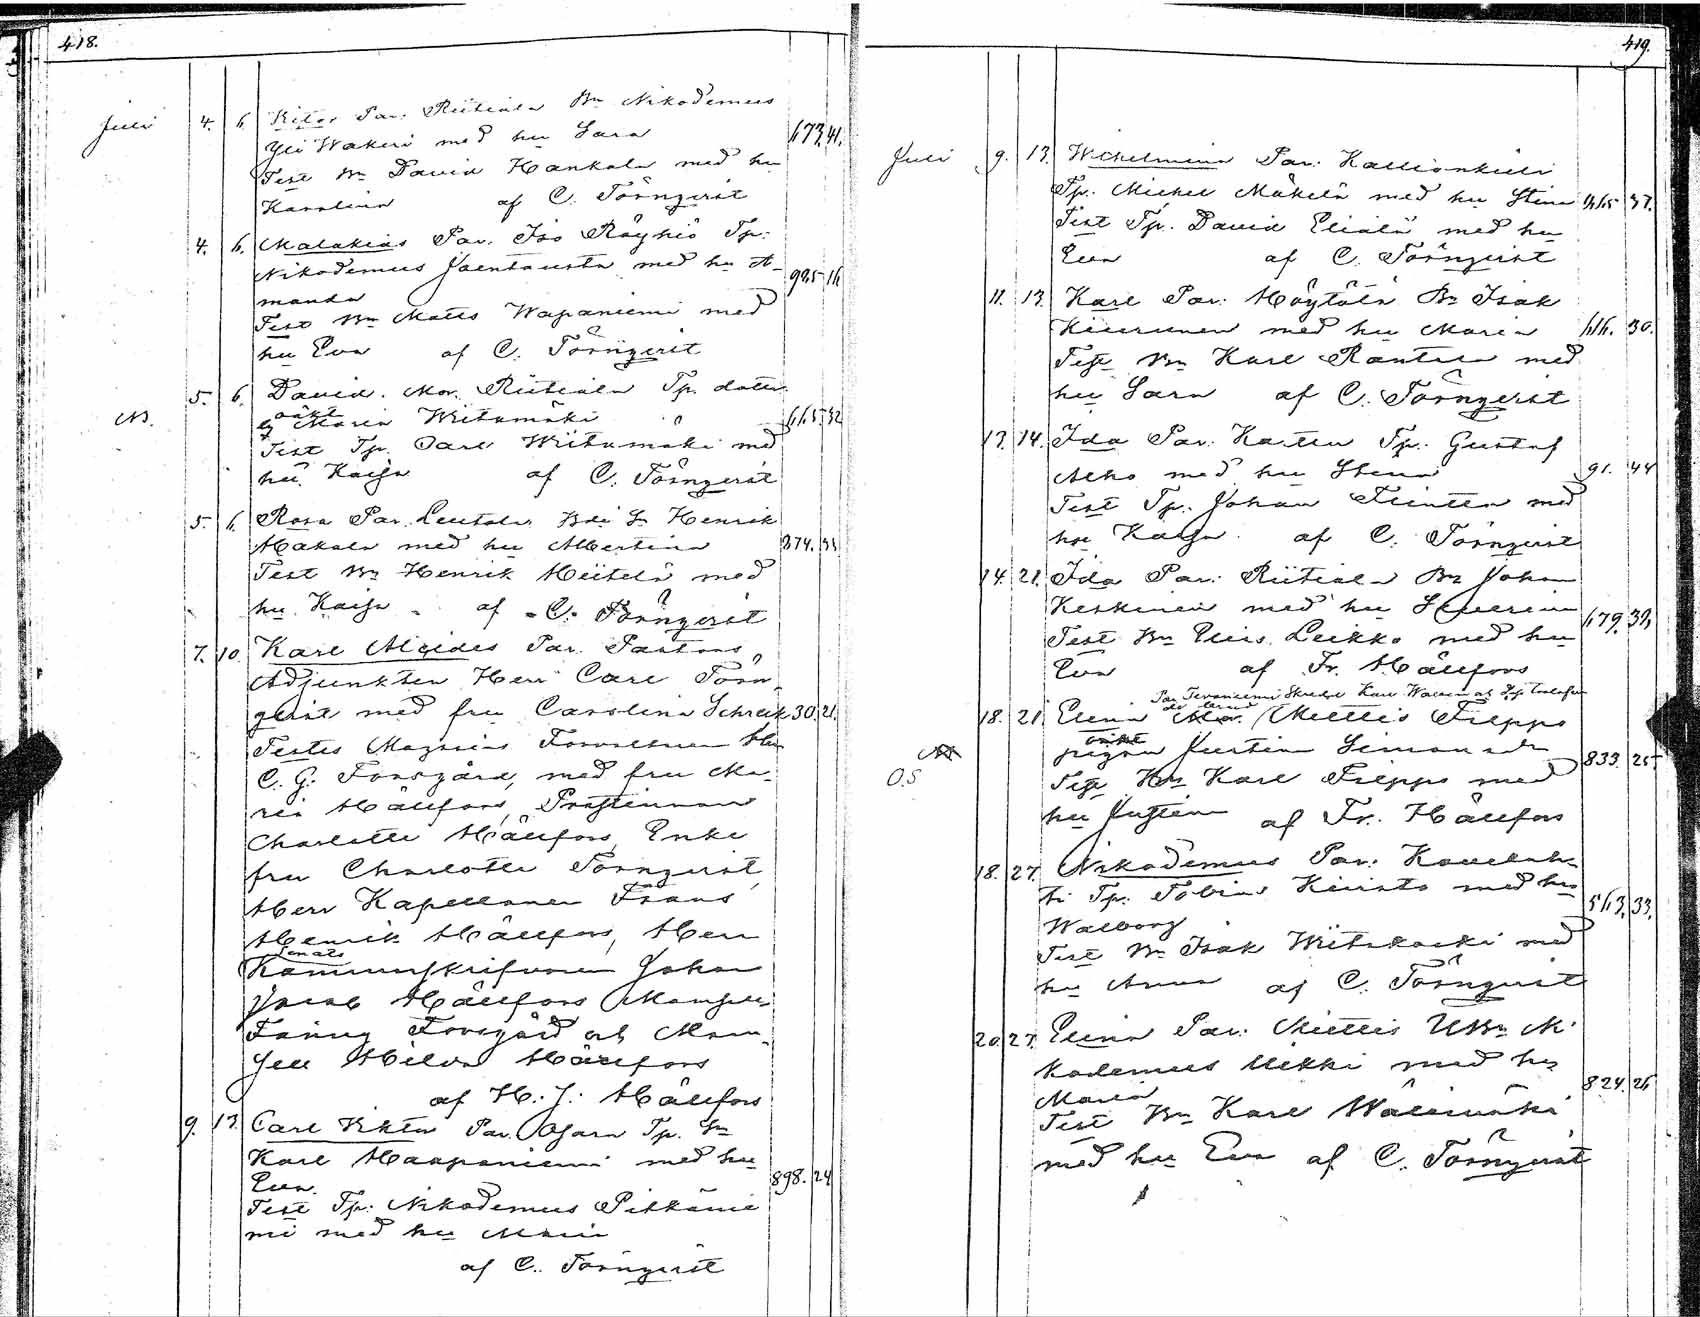 418.
Juli 4. 6. Par. Riitiala Bn Nikodemus
Yli Wakeri med hu Sara 673. 41.
Test Bn David Hankala med hu
Karolina af C. Törnqvist
4. 6. Malakias Par. Iso Röyhiö Tp.
Nikodemus Jaentausta med hu A- 925 16
manda
Test Bn Matts Wapaniemi med
hu Eva af C. Törnqvist
5. 6. David. Mor. Riitiala Tp. dotter
NB. oäkt Maria Wiitamäki 665. 32
Test Tp. Carl Wiitamäki med
hu Kaisa af C. Törnqvist
5. 6. Rosa Par. Leutola Henrik
Hakala med hu Albertina 874. 33
Test Bn Henrik Hiitelä med
hu Kaisa af C. Törnqvist
7. 10. Karl Alcides Par. Pastors
Adjunkten Herr Carl Törn-
qvist med fru Carolina Schreck 30. 21.
Testes Magasins Förvaltaren Herr
C. G. Forsgård, med fru Ma-
ria Hällfors, Prostinnan
Charlotta Hällfors, Enke
fru Charlotta Törnqvist,
Herr Kapellanen Frans
Henrik Hällfors, Herr
Senats
Kammarskrifvaren Johan
Jacob Hällfors Mamsell
Fanny Forsgård och Mam-
sell Hilda Hällfors
af H. J. Hällfors
9. 13. Carl Viktor Par. Ojara Tp. Sn
Karl Haapaniemi med hu
Eva. 898. 24
Test Tp. Nikodemus Pitkänie
mi med hu Maria
af C. Törnqvist
419.
Juli 9. 13. Wilhelmina Par. Kallionkieli
Tp. Michel Mäkelä med hu Stina 37.
Test Tp. David Elialä med hu
Eva af C. Törnqvist
11. 13. Karl Par. Höytölä Bn Isak
Kiurunen med hu Maria 616. 30.
Test Bn Karl Rantala med
hu Sara af C. Törnqvist
13. 14. Ida Par. Karttu Tp. Gustaf
Alho med hu Stina 91. 44
Test Tp. Johan Flinttu med
hu Kaisa. af C. Törnqvist
14. 21. Ida Par. Riitiala Bn Johan
Keskinen med hu Severina 679. 39.
Test Bn Elis Leikko med hu
Eva af Fr. Hällfors
Par Tevaniemi Skredd. Karl
18. 21. Elina Mor. Miettis Filppo
oäkt
pigan Justina Simonsdr 833. 25
O.S Test Bn Karl Filppo med
hu Justina af Fr. Hällfors
18. 27. Nikodemus Par. Kovelah-
ti Tp. Tobias Kivisto med hu
Walborg 563. 33.
Test Bn Isak Wiitakoski med
hu Anna af C. Törnqvist
20. 27. Elina Par. Miettis UBn Ni-
kodemus Ukki med hu
Maria 824. 26
Test Bn Karl Wälimäki
med hu Eva af C. Törnqvist